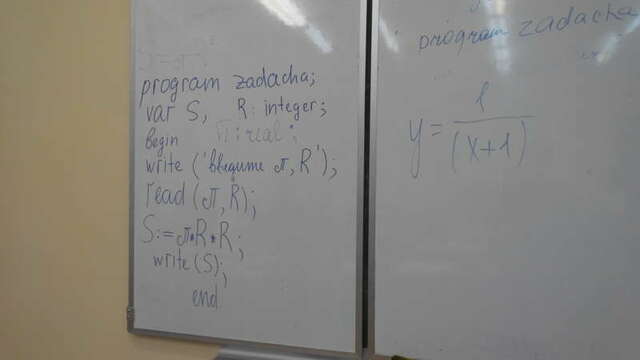 program zadacha;
var S, R: integer;
begin π: real;
write ('введите π, R');
read (π, R);
S:=π*R*R;
write(S);
end
program zadacha
y = 1
(x+1)